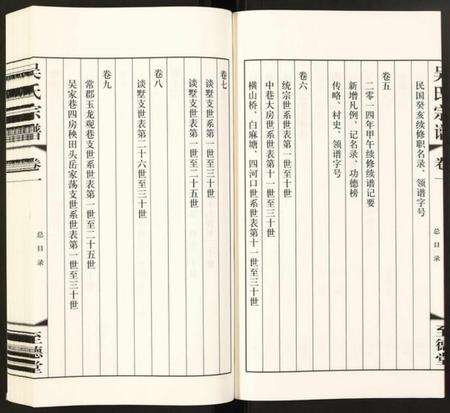 吴氏宗谱
卷一
总目录
至德堂
民国癸亥续修职名录、领谱字号
卷五
二零一四年甲午续修续谱记要
新增凡例、记名录、功德榜
传略、村史、领谱字号
卷六
统宗世系表第一世至三十世
中巷大房世系世表第十一世至三十世
横山桥、白麻塘、四河口世系世表第十一世至三十世
吴氏宗谱
卷一
总目录
至德堂
卷七
谈墅支世系第一世至三十世
谈墅支世表第一世至二十五世
卷八
谈墅支世表第二十六世至三十世
卷九
常郡玉龙观巷支世系世表第一世至二十五世
吴家巷四房秧田头岳家荡支世系世表第一世至三十世